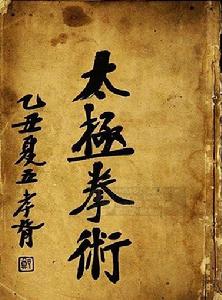 太極拳術
乙丑夏五孝胥